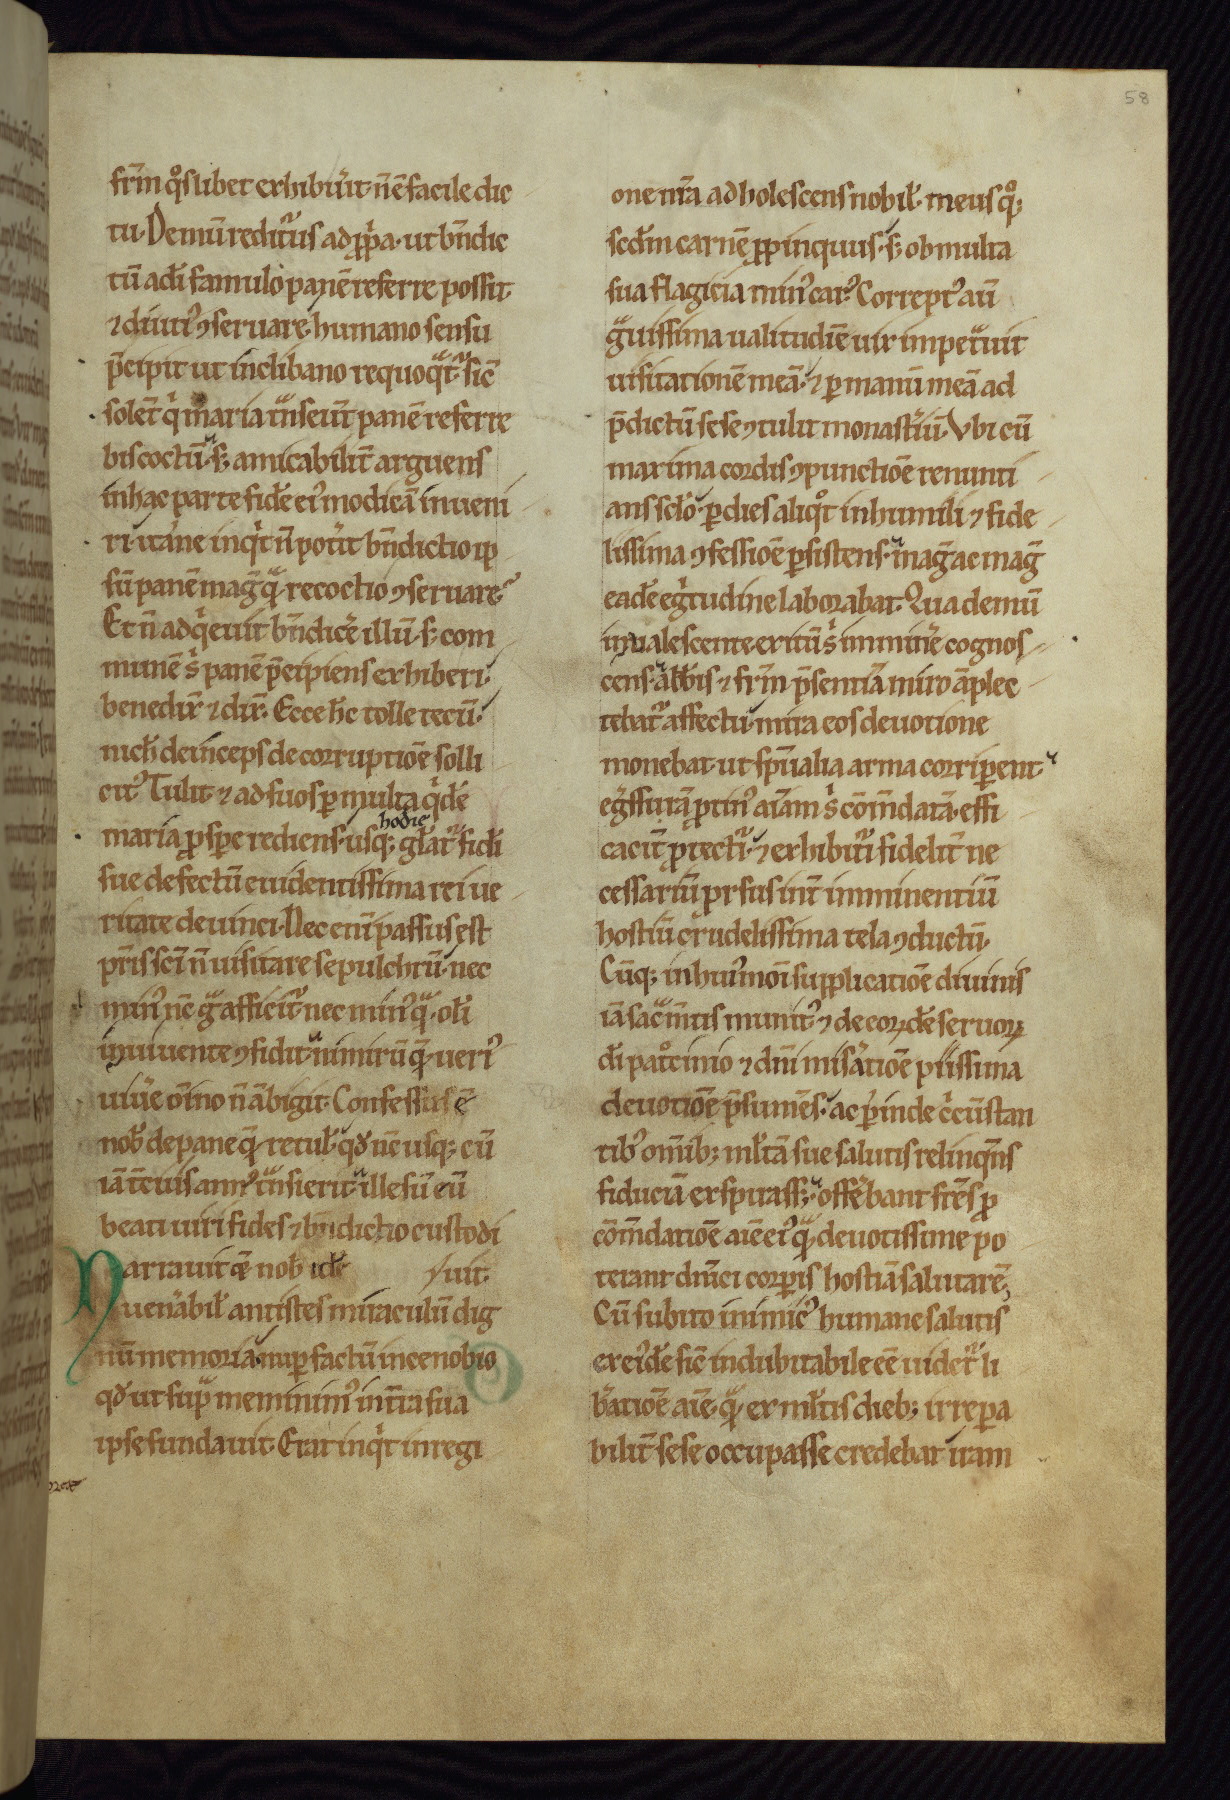 58
fr̄m q̊slibet exhibiu̾it· n̄ ē facile dic
tu· Demū reditur᷒us ad ꝓp̄a· ut bn̄dic
tū a dī famulo panē referre possit·
⁊ diuti᷒ ꝯseruare· humano sensu
p̄cipit ut in clibano requoqᷓt᷑· sic̄
solet̄ qͥ maria tᷓnseūt panē referre
biscoctū· s; amicabilit̄ arguens
in hac parte fidē ei᷒ modicā inueni
ri· itane inqͥt n̄ pot̾it bn̄dictio ip
sū panē maḡ qᷓ recoctio ꝯseruare?
Et n̄ adqͥeuit bn̄dic̾e illū· s; com
munē s᷒ panē p̄cipiens exhiberi·
benedix̄ ⁊ dix̄· Ecce h̄c tolle tecū·
nich̄ deinceps de corruptiōe solli
cit᷒· Tulit ⁊ ad suos ꝑ multa qͥdē
maria ꝓspe rediens· usq; hodie gl̄at᷑ fidī
sue defectū euidentissima rei ue
ritate deuinci· Nec enī passus est
pr̄is sc̄i n̄ uisitare sepulchrū· nec
min᷒ nc̄ gᷓ afficit᷑· nec min᷒ qᷓ olī
in uiuente ꝯfidit· nimirū qᷓ ueri᷒
uiu̾e om̄no n̄ ābigit· Confessus ē
nob̄ de pane qᷓ retul̄· qđ nē usq; cū
iā t̄cius ann᷒ tᷓnsierit· illesū eū
beati uiri fides ⁊ bn̄dictio custodi
Narrauit qᷓ nob̄ idē uit·
uen̾abil̄ antistes miraculū dig
nū memoria· nup̄ factū in cenobio
qđ ut supᷓ meminim᷒ in t̄ra sua
ipse fundauit· Erat inqͥt in regi
one nr̄a adholescens nobil̄· meus q̊q;
sed̄m carnē ꝓpinquus· s; ob multa
sua flagicia min᷒ car᷒· Correpť aū
gᷓuissima ualitudīe uir impetᷓuit
uisitationē meā· ⁊ ꝑ manū meā ad
p̄dictū sese ꝯtulit monast̾iū· Vbi cū
maxima cordis ꝯpunctiōe renunti
ans sc̄lo· ꝑ dies aliq̊t in humili ⁊ fide
lissima ꝯfessiōe ꝑsistens· maḡ ac maḡ
eadē eg̾tudine laborabat· Qua demū
inualescente· exitū s᷒ immin̾e cognos
cens· abb̄is ⁊ fr̄m p̄sentiā miro āplec
tebat᷑ affectu· mira eos deuotione
monebat· ut sp̄ualia arma corriꝑent·
eg̾ssurā ꝓtin᷒ aīam s᷒ cōm̄datā· effi
cacit̄ ꝓtecturi· ⁊ exhibituri fidelit̄ ne
cessariū p̄sus int̄ imminentiū
hostiū crudelissima tela ꝯductū·
Cūq; in hui᷒mōi supplicatiōe diuinis
iā sacᷓm̄tis munit᷒· ⁊ de corꝑe ser uoꝝ
dī pat̊cinio ⁊ dn̄i mis̾atiōe piissima
deuotiōe p̄sumēs· ac ꝑinde cͥcūstan
tib᷒ om̄ib; ml̄tā sue salutis relinqͣns
fiduciā exspirass;· offerebant fr̄es ꝓ
cōm̄datiōe aīe ei᷒ qᷓ deuotissime po
terant dn̄ici corꝑis hostiā salutarē;
Cū subito inimic᷒ humane salutis
ex ei᷒dē sic̄ indubitabile eē uidet᷑ li
b̾atiōe aīe· qᷓ ex ml̄tis dieb; irreꝑa
bilit̄ sese occupasse credebat iram